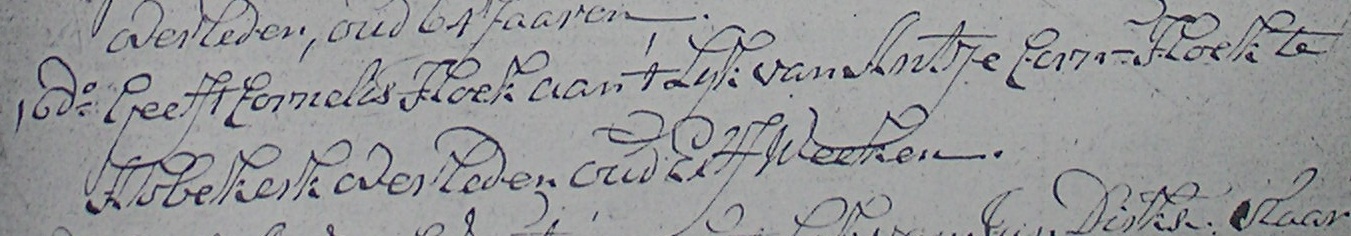 overleden, oud 64 Jaaren.
16do. Geeft Cornelis Floek aan 't Lijk van Antje Corn= Floek te
Abbekerk overleden oud Elf Weeken.
Dirks. Slaar